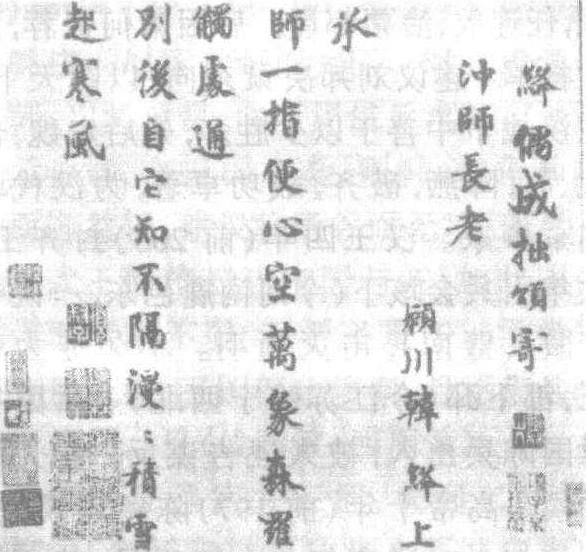 絳偶成拙頌寄
沖師長老
潁川韓絳上
承
師一指便心空萬象森羅
觸處通
別後自它知不隔漫〻積雪
起寒風